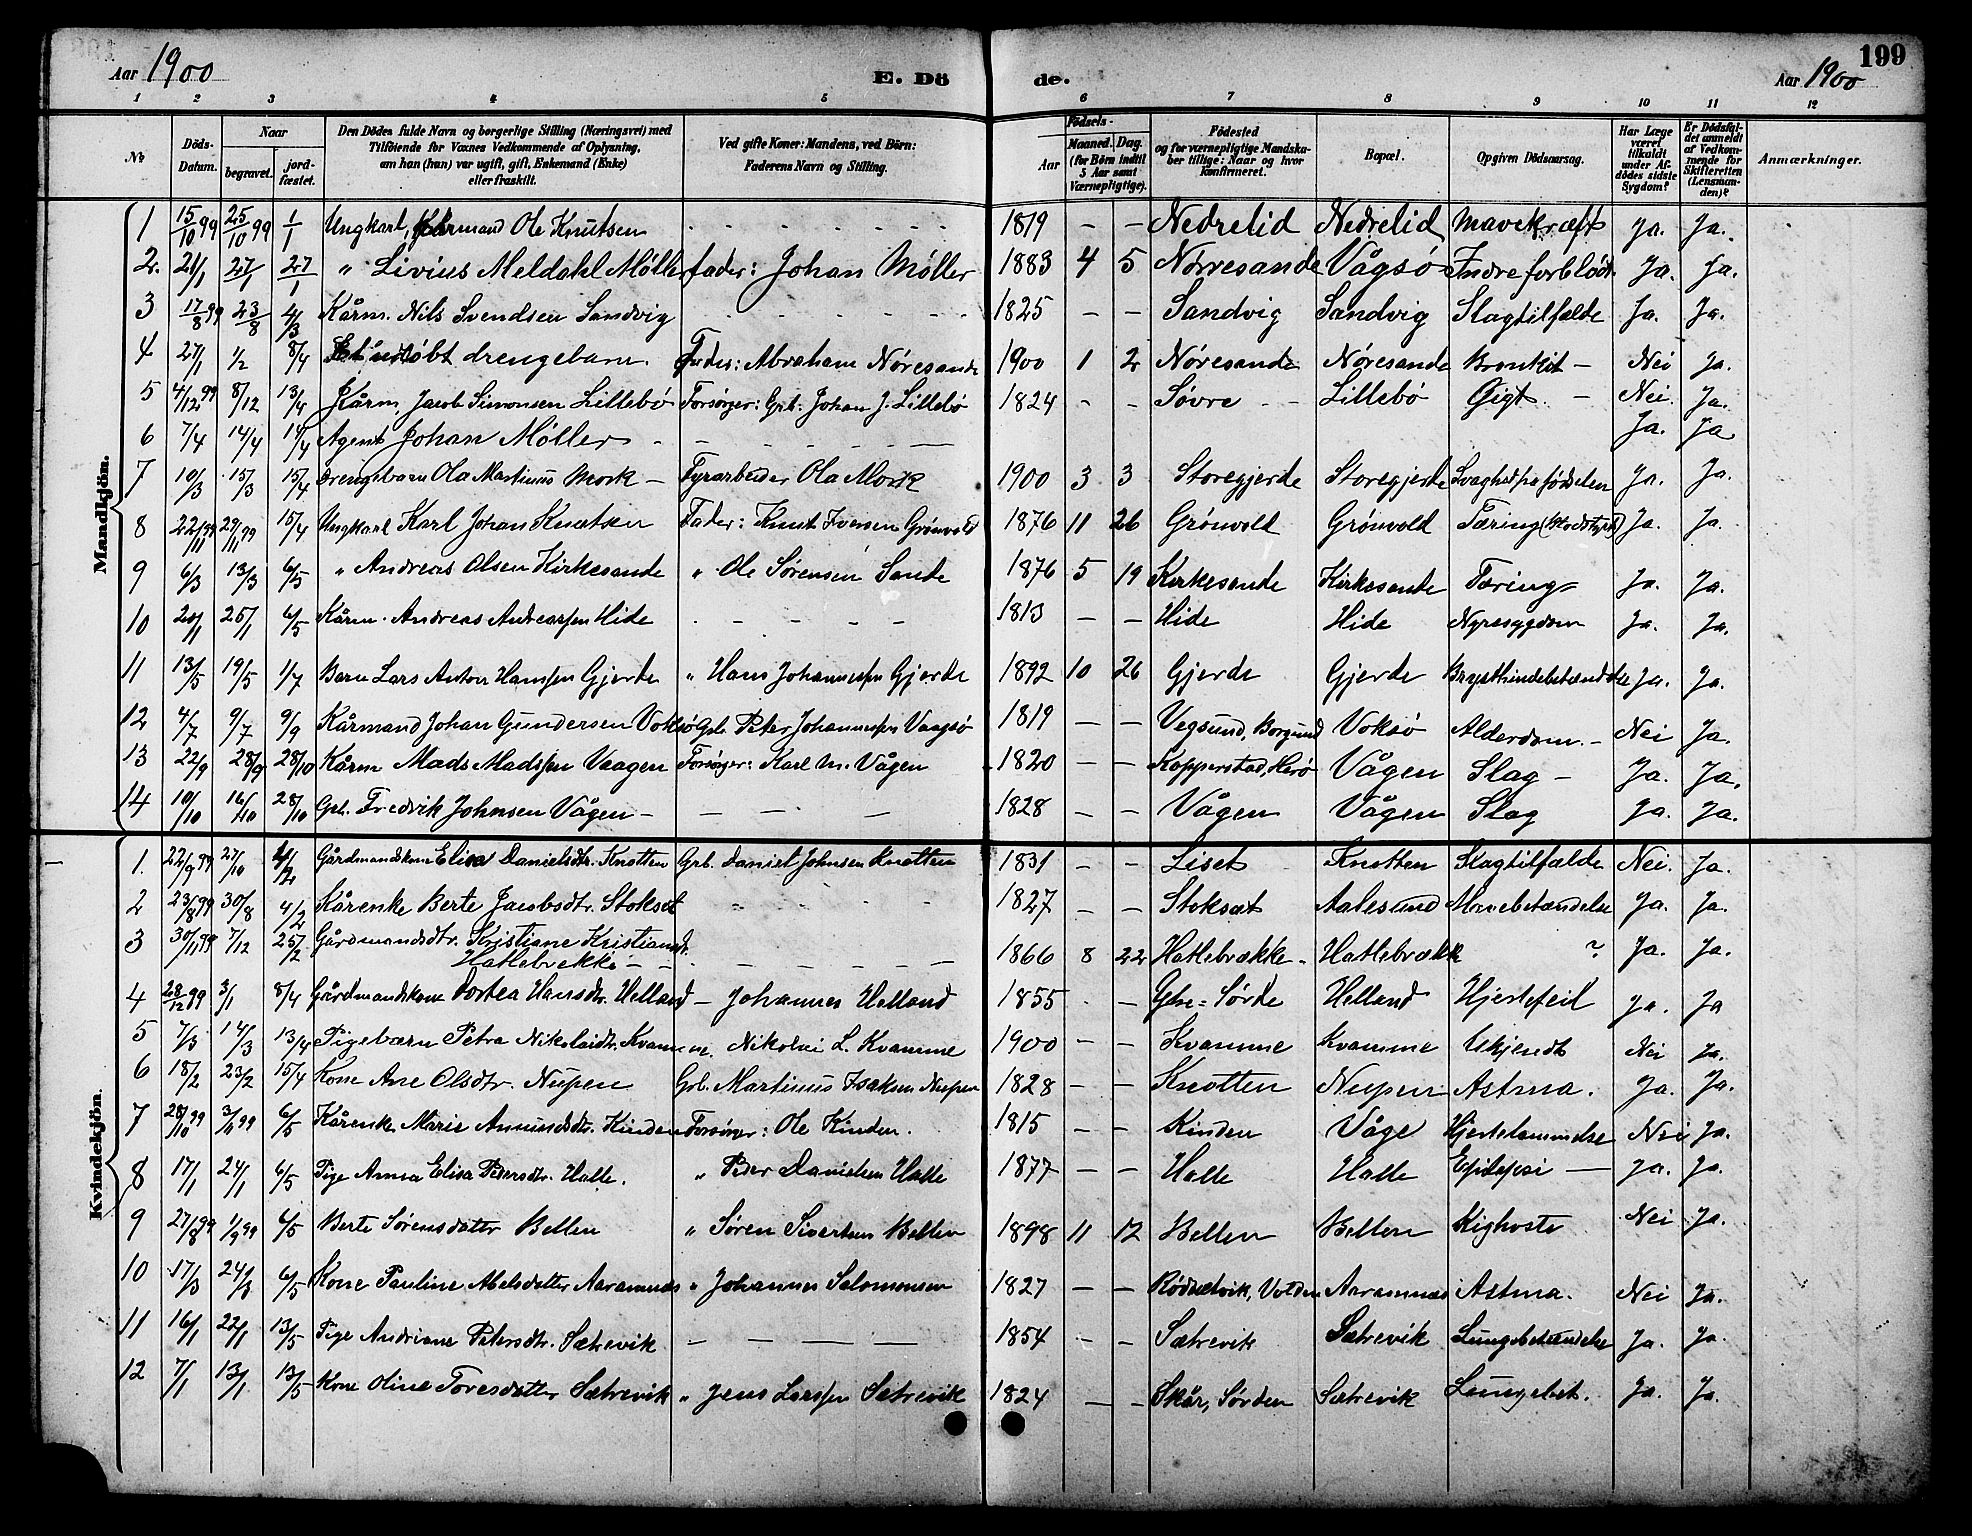 199
Aar 1900 E. Dö de. Aar 1900
1 2 3 4 5 6 7 8 9 10 11 12
No Döds-Datum. Naar begravet. jord-fæstet. Den Dödes fulde Navn og borgerlige Stilling (Næringsvei) med Tilföiende for Voxnes Vedkommende af Oplysning, om han (hun) var ugift, gift, Enkemand (Enke) eller fraskilt. Ved gifte Koner: Mandens, ved Börn: Faderens Navn og Stilling. Födsels- Aar Maaned. Dag. (for Börn indtil 5 Aar samt Værnepligtige). Födested og for værnepligtige Mandskaber tillige: Naar og hvor konfirmeret. Bopæl. Opgiven Dödsaarsag. Har Læge været tilkaldt under Afdödes sidste Sygdom? Er Dödsfaldet anmeldt af Vedkommende for Skifteretten (Lensmanden)? Anmærkninger.
Mandkjön.
1 15/10 99 25/10 99 1/1 Ungkarl, Kårmand Ole Knutsen - - - - - - 1819 - - Nedrelid Nedrelid Mavekræft Ja. Ja.
2. 21/1 27/1 27/1 " Livius Meldahl Møller fader: Johan Møller 1883 4 5 Nørresande Vågsø Indre forblødn. Ja. Ja.
3 17/8 99 23/8 4/3 Kårm. Nils Svendsen Sandvig - - - - - - 1825 - - Sandvig Sandvig Slagtilfælde Ja. Ja.
4 27/1 1/2 8/4 drengebarn. Fader: Abraham Nøresande 1900 1 2 Nøresande Nøresande Bronkit - Nei Ja.
5 4/12 99 8/12 13/4 Kårm. Jacob Simonsen Lillebø Forsørger: Grb. Johan J. Lillebø 1824 - - Søvre - - Lillebø Gigt. - Nei. Ja.
6 7/4 14/4 14/4 Agent Johan Møller - - - - - - Ja. Ja
7 10/3 15/3 15/4 Drengebarn Ola Martinus Mork - Fyrarbeider Ola Mork 1900 3 3 Storegjerde Storegjerde Svaghed fra fødselen Ja. Ja.
8 22/11 99 29/11 99 15/4 Ungkarl Karl Johan Knutsen Fader: Knut Iversen Grønvold 1876 11 26 Grønvold Grønvold Tæring Ja. Ja.
9 6/3 13/3 6/5 " Andreas Olsen Kirkesande " Ole Sørensen Sande 1876 5 19 Kirkesande Kirkesande Tæring Ja. Ja.
10 20/1 25/1 6/5 Kårm. Andreas Andreassen Hide - - - - - 1813 - - Hide Hide Nyresygdom Ja. Ja.
11 13/5 19/5 1/7 Barn Lars Anton Hanssen Gjerde " Hans Johannessen Gjerde 1892 10 26 Gjerde Gjerde Brysthindebetændelse Ja. Ja.
12 4/7 9/7 9/9 Kårmand Johan Gundersen Voksø Grb. Peter Johannessen Vaagsø 1819 - - Vegsund, Borgund Voksø Alderdom. - Nei Ja.
13 22/9 28/9 28/10 Kårm Mads Madssen Vaagen Forsørger: Karl M. Vågen 1820 - - Kopperstad, Herø Vågen Slag - Ja. Ja.
14 10/10 16/10 28/10 Grb. Fredrik Johnsen Vågen - - - - 1828 - - Vågen Vågen Slag Ja. Ja.
Kvindekjön.
1. 22/9 99 27/10 4/2 Gårdmandskone Elisa Danielsdtr. Knotten Grb. Daniel Johnsen Knotten 1831 - - Liset Knotten Slagtilfælde Nei. Ja.
2 23/8 99 30/8 4/2 Kårenke Berte Jacobsdtr. Stokset - - - - - 1827 - - Stoksæt Aalesund Mavebetændelse Ja. Ja.
3 30/11 99 7/12 25/2 Gårdmandsdtr. Kristiane Kristiansdt.
Hatlebrekke - - - - - - - 1866 8 22 Hatlebrække - Hatlebrække ? Ja. Ja.
4 28/12 99 3/1 8/4 Gårdmandskone Dortea Hansdtr. Helland - Johannes Helland 1855 - - Sørde Helland Hjertefeil Ja. Ja
5 7/3 14/3 13/4 Pigebarn Petra Nikolaidtr. Kvamme. Nikolai L. Kvamme 1900 - - Kvamme Kvamme Ukjendt Nei Ja.
6 18/2 23/2 15/4 Kone Ane Olsdtr. Nupen Grb. Martinus Isaksen Nupen 1828 - - Knotten Nupen Astma. Ja. Ja.
7 28/10 99 3/11 99 6/5 Kårenke Marie Amundsdtr. Kinden Forsørger: Ole Kinden. 1815 - - Kinden Våge Hjertelammelse Nei Ja.
8 17/1 24/1 6/5 Pige Anna Elisa Petersdtr. Halle. " Peder Danielsen Halle 1877 - - Halle Halle Epilepsi - Ja. Ja.
9 27/8 99 1/9 99 6/5 Berte Sørensdatter Bellen " Søren Sivertsen Bellen 1898 11 12 Bellen Bellen Kighoste Nei Ja.
10 17/3 24/3 6/5 Kone Pauline Abelsdatter Aaramnæs " Johannes Salomonsen 1827 - - Rødsætvik, Volden Aaramnæs Astma. Nei Ja.
11 16/1 22/1 13/5 Pige Andriane Petersdtr. Sætrevik - - - - 1854 - - Sætrevik Sætrevik Lungebetændelse Ja. Ja.
12 7/1 13/1 13/5 Kone Oline Toresdatter Sætrevik " Jens Larssen Sætrevik 1824 - - Skår, Sørden Sætrevik Lungebet. Ja. Ja.